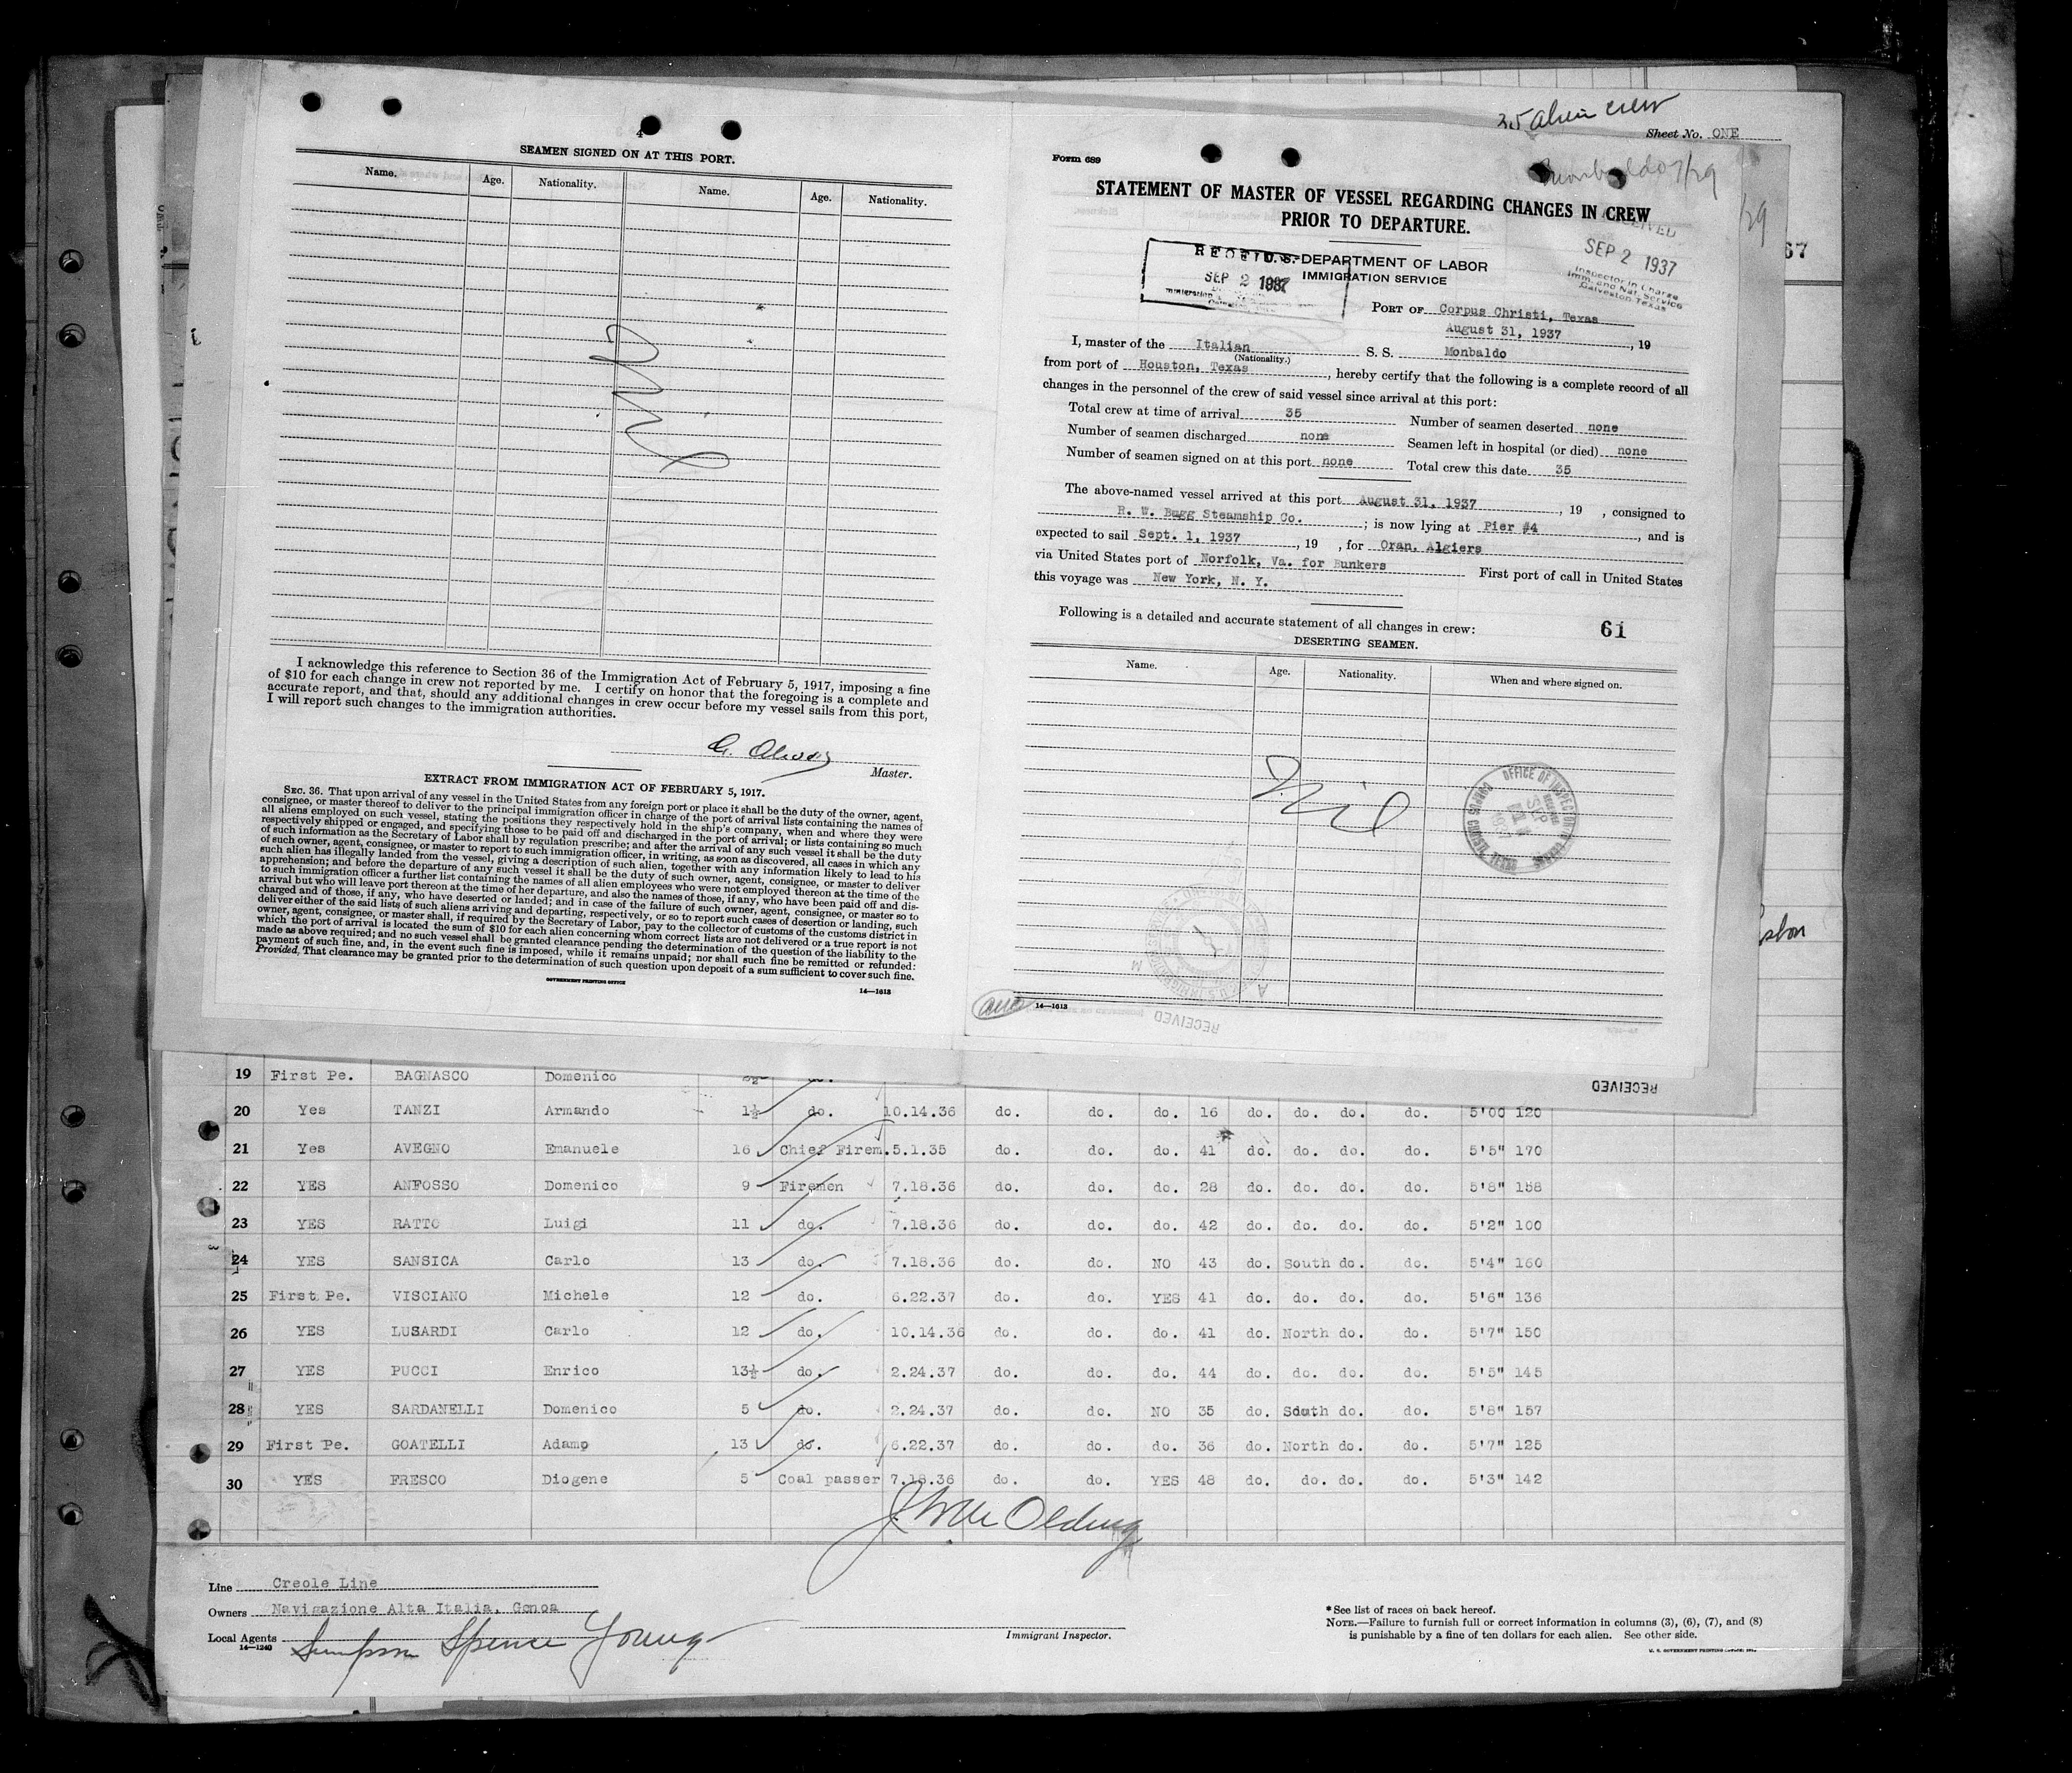 4
SEAMEN SIGNED ON AT THIS PORT.
Name. Age. Nationality. Name. Age. Nationality.
Nil
I acknowledge this reference to Section 36 of the Immigration Act of February 5, 1917, imposing a fine
of $10 for each change in crew not reported by me. I certify on honor that the foregoing is a complete and
accurate report, and that, should any additional changes in crew occur before my vessel sails from this port,
I will report such changes to the immigration authorities.
Master.
EXTRACT FROM IMMIGRATION ACT OF FEBRUARY 5, 1917.
SEC. 36. That upon arrival of any vessel in the United States from any foreign port or place it shall be the duty of the owner, agent,
consignee, or master thereof to deliver to the principal immigration officer in charge of the port of arrival lists containing the names of
all aliens employed on such vessel, stating the positions they respectively hold in the ship's company, when and where they were
respectively shipped or engaged, and specifying those to be paid off and discharged in the port of arrival; or lists containing so much
of such information as the Secretary of Labor shall by regulation prescribe; and after the arrival of any such vessel it shall be the duty
of such owner, agent, consignee, or master to report to such immigration officer, in writing, as soon as discovered, all cases in which any
such alien has illegally landed from the vessel, giving a description of such alien, together with any information likely to lead to his
apprehension; and before the departure of any such vessel it shall be the duty of such owner, agent, consignee, or master to deliver
to such immigration officer a further list containing the names of all alien employees who were not employed thereon at the time of the
arrival but who will leave port thereon at the time of her departure, and also the names of those, if any, who have been paid off and dis-
charged and of those, if any, who have deserted or landed; and in case of the failure of such owner, agent, consignee, or master so to
deliver either of the said lists of such aliens arriving and departing, respectively, or so to report such cases of desertion or landing, such
owner, agent, consignee, or master shall, if required by the Secretary of Labor, pay to the collector of customs of the customs district in
which the port of arrival is located the sum of $10 for each alien concerning whom correct lists are not delivered or a true report is not
made as above required; and no such vessel shall be granted clearance pending the determination of the question of the liability to the
payment of such fine, and, in the event such fine is imposed, while it remains unpaid; nor shall such fine be remitted or refunded:
Provided, That clearance may be granted prior to the determination of such question upon deposit of a sum sufficient to cover such fine.
GOVERNMENT PRINTING OFFICE
14—1613
35 alien crew
Sheet No. ONE
Form 689
Monbaldo 7/29
STATEMENT OF MASTER OF VESSEL REGARDING CHANGES IN CREW
PRIOR TO DEPARTURE.
RECEIVED
SEP 2 1937
Inspector in Charge
Imm. and Nat. Service
Galveston, Texas
SEP 2 1937
U. S. DEPARTMENT OF LABOR
IMMIGRATION SERVICE
PORT OF Corpus Christi, Texas
August 31, 1937, 19
I, master of the Italian S. S. Monbaldo
(Nationality.)
from port of Houston, Texas, hereby certify that the following is a complete record of all
changes in the personnel of the crew of said vessel since arrival at this port:
Total crew at time of arrival 35 Number of seamen deserted none
Number of seamen discharged none Seamen left in hospital (or died) none
Number of seamen signed on at this port none Total crew this date 35
The above-named vessel arrived at this port August 31, 1937, 19 , consigned to
R. W. Bugg Steamship Co. ; is now lying at Pier #4, and is
expected to sail Sept. 1, 1937, 19 , for Oran, Algiers
via United States port of Norfolk, Va. for Bunkers First port of call in United States
this voyage was New York, N. Y.
Following is a detailed and accurate statement of all changes in crew:
61
DESERTING SEAMEN.
Name. Age. Nationality. When and where signed on.
Nil
14—1613
RECEIVED
RECEIVED
67
19 First Pe. BAGNASCO Domenico do.
20 Yes TANZI Armando 1½ do. 10.14.36 do. do. do. 16 do. do. do. do. 5'00 120
21 Yes AVEGNO Emanuele 16 Chief Firem. 5.1.35 do. do. do. 41 do. do. do. do. 5'5" 170
22 YES ANFOSSO Domenico 9 Firemen 7.18.36 do. do. do. 28 do. do. do. do. 5'8" 158
23 YES RATTO Luigi 11 do. 7.18.36 do. do. do. 42 do. do. do. do. 5'2" 100
24 YES SANSICA Carlo 13 do. 7.18.36 do. do. NO 43 do. South do. do. 5'4" 160
25 First Pe. VISCIANO Michele 12 do. 6.22.37 do. do. YES 41 do. do. do. do. 5'6" 136
26 YES LUSARDI Carlo 12 do. 10.14.36 do. do. do. 41 do. North do. do. 5'7" 150
27 YES PUCCI Enrico 13½ do. 2.24.37 do. do. do. 44 do. do. do. do. 5'5" 145
28 YES SARDANELLI Domenico 5 do. 2.24.37 do. do. NO 35 do. South do. do. 5'8" 157
29 First Pe. GOATELLI Adamo 13 do. 6.22.37 do. do. do. 36 do. North do. do. 5'7" 125
30 YES FRESCO Diogene 5 Coal passer 7.18.36 do. do. YES 48 do. do. do. do. 5'3" 142
Line Creole Line
Owners Navigazione Alta Italia, Genoa
Local Agents Simpson Spence Young
14—1240
Immigrant Inspector.
*See list of races on back hereof.
NOTE.—Failure to furnish full or correct information in columns (3), (6), (7), and (8)
is punishable by a fine of ten dollars for each alien. See other side.